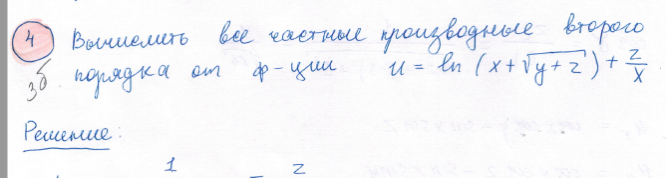 4 Вычислить все частные производные второго
3б. порядка от ф-ции u = ln (x+√y+z) + z/x
Решение:
1 z